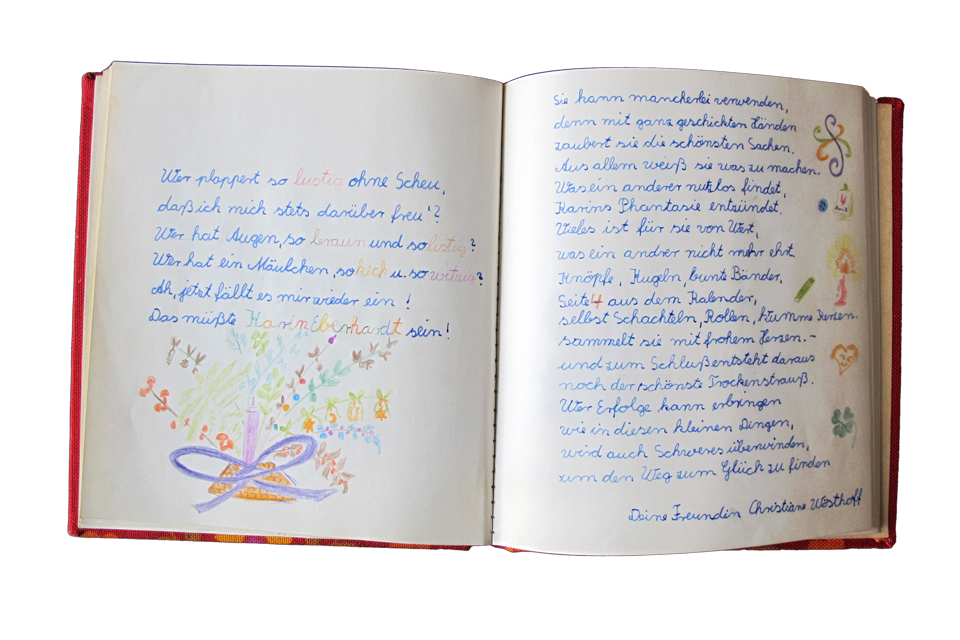 Wer plappert so lustig ohne Scheu,
daß ich mich stets darüber freu'?
Wer hat Augen, so braun und so listig?
Wer hat ein Mäulchen, so keck u. so witzig?
Ah, jetzt fällt es mir wieder ein!
Das müßte Karin Eberhardt sein!
Sie kann mancherlei verwenden,
denn mit ganz geschickten Händen
zaubert sie die schönsten Sachen.
Aus allem weiß sie was zu machen.
Was ein anderer nutzlos findet,
Karins Phantasie entzündet.
Vieles ist für sie von Wert,
was ein andrer nicht mehr ehrt.
Knöpfe, Kugeln, bunte Bänder,
Seite 4 aus dem Kalender,
selbst Schachteln, Rollen, krumme Kerzen.
sammelt sie mit frohem Herzen. -
und zum Schluß entsteht daraus
noch der schönste Trockenstrauß.
Wer Erfolge kann erbringen
wie in diesen kleinen Dingen,
wird auch Schweres überwinden,
um den Weg zum Glück zu finden
Deine Freundin Christiane Westhoff